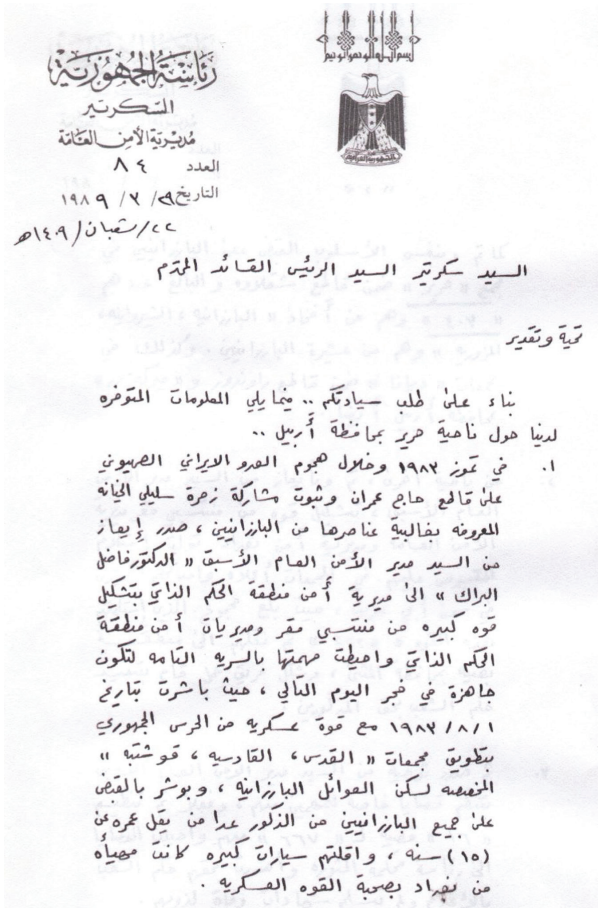 بسم الله الرحمن الرحيم
رئاسة الجمهورية
السكرتير
مديرية الأمن العامة
العدد ٨٤
التاريخ ٢٩ / ٣ / ١٩٨٩
٢٢/شعبان/١٤٠٩هـ
السيد سكرتير السيد الرئيس القائد المحترم
تحية وتقدير
بناء على طلب سيادتكم .. فيمايلي المعلومات المتوفره
لدينا حول ناحية حرير بمحافظة أربيل ..
١. في تموز ١٩٨٣ وخلال هجوم العدو الايراني الصهيوني
على قاطع حاج عمران وثبوت مشاركة زمرة سليلي الخيانه
المعروفه بغالبية عناصرها من البارزانيين ، صدر إيعاز
من السيد مدير الأمن العام الأسبق " الدكتور فاضل
البراك " الى مديرية أمن منطقة الحكم الذاتي بتشكيل
قوه كبيره من منتسبي مقر ومديريات أمن منطقة
الحكم الذاتي واحيطت مهمتها بالسريه التامه لتكون
جاهزة في فجر اليوم التالي ، حيث باشرت بتاريخ
١٩٨٣/٨/١ مع قوة عسكريه من الحرس الجمهوري
بتطويق مجمعات " القدس ، القادسيه ، قوشتبه "
المخصصه لسكن العوائل البارزانيه ، وبوشر بالقبض
على جميع البارزانيين من الذكور عدا من يقل عمره عن
(١٥) سنه ، واقلتهم سيارات كبيره كانت مهيأه
من بغداد بصحبة القوه العسكريه .